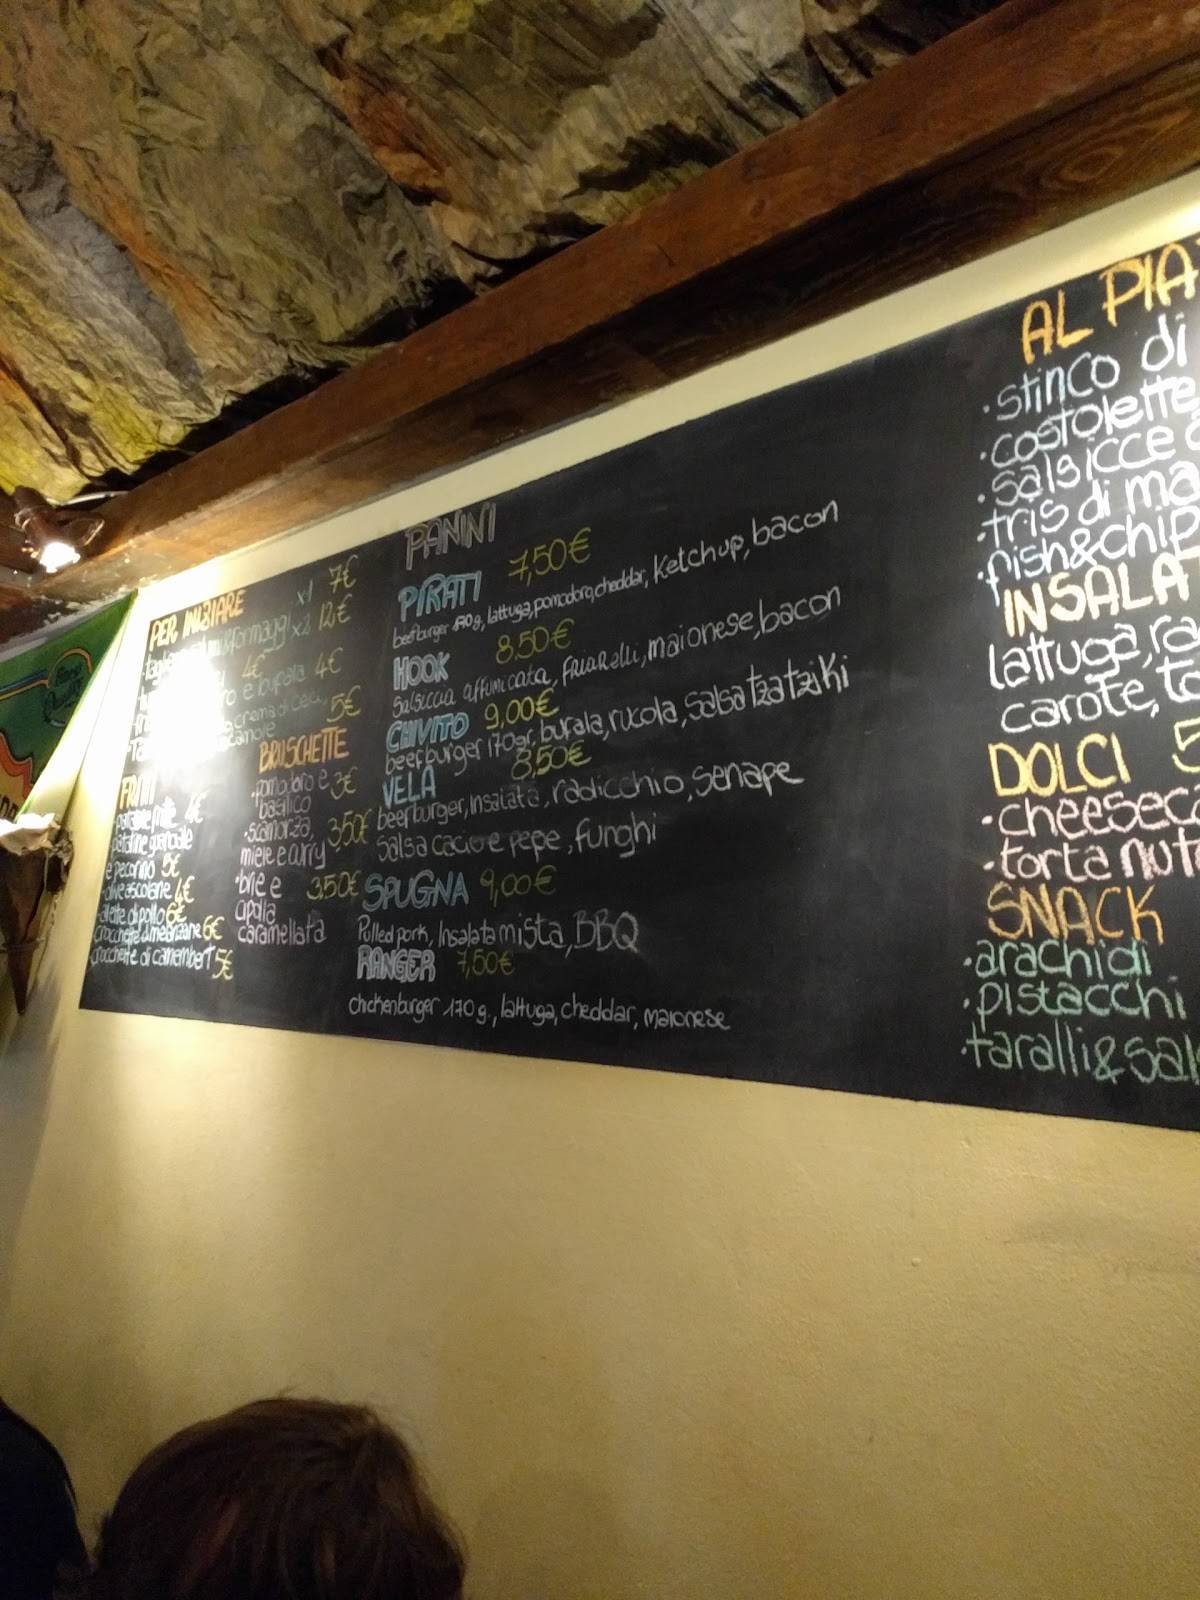 PER INIZIARE
x1 7€
x2 12€
4€
e bufala 4€
crema di ceci
5€
FRITTI
patatine fritte 4€
patatine guanciale
e pecorino 5€
olive ascolane 4€
alette di pollo 6€
crocchette di melanzane 6€
crocchette di camembert 5€
BRUSCHETTE
pomodoro e 3€
basilico
scamorza, 3,50€
miele e curry
brie e 3,50€
cipolla
caramellata
PANINI
PIRATI 7,50€
beefburger 170g, lattuga, pomodoro, cheddar, Ketchup, bacon
HOOK 8.50€
Salsiccia affumicata, FRIARELLI, maionese, bacon
CHIVITO 9,00€
beefburger 170gr, bufala, rucola, salsa tzatziki
VELA 8,50€
beefburger, insalata, radicchio, senape
salsa cacio e pepe, funghi
SPUGNA 9,00€
Pulled pork, Insalata mista, BBQ
RANGER 7,50€
chickenburger 170 g., lattuga, cheddar, maionese
AL PIA
·stinco di
·costolette
·salsicce
·tris di ma
·fish&chip
INSALAT
lattuga, ra
carote,
DOLCI 5
·cheesec
·torta nut
SNACK
·arachidi
·pistacchi
·taralli&sal